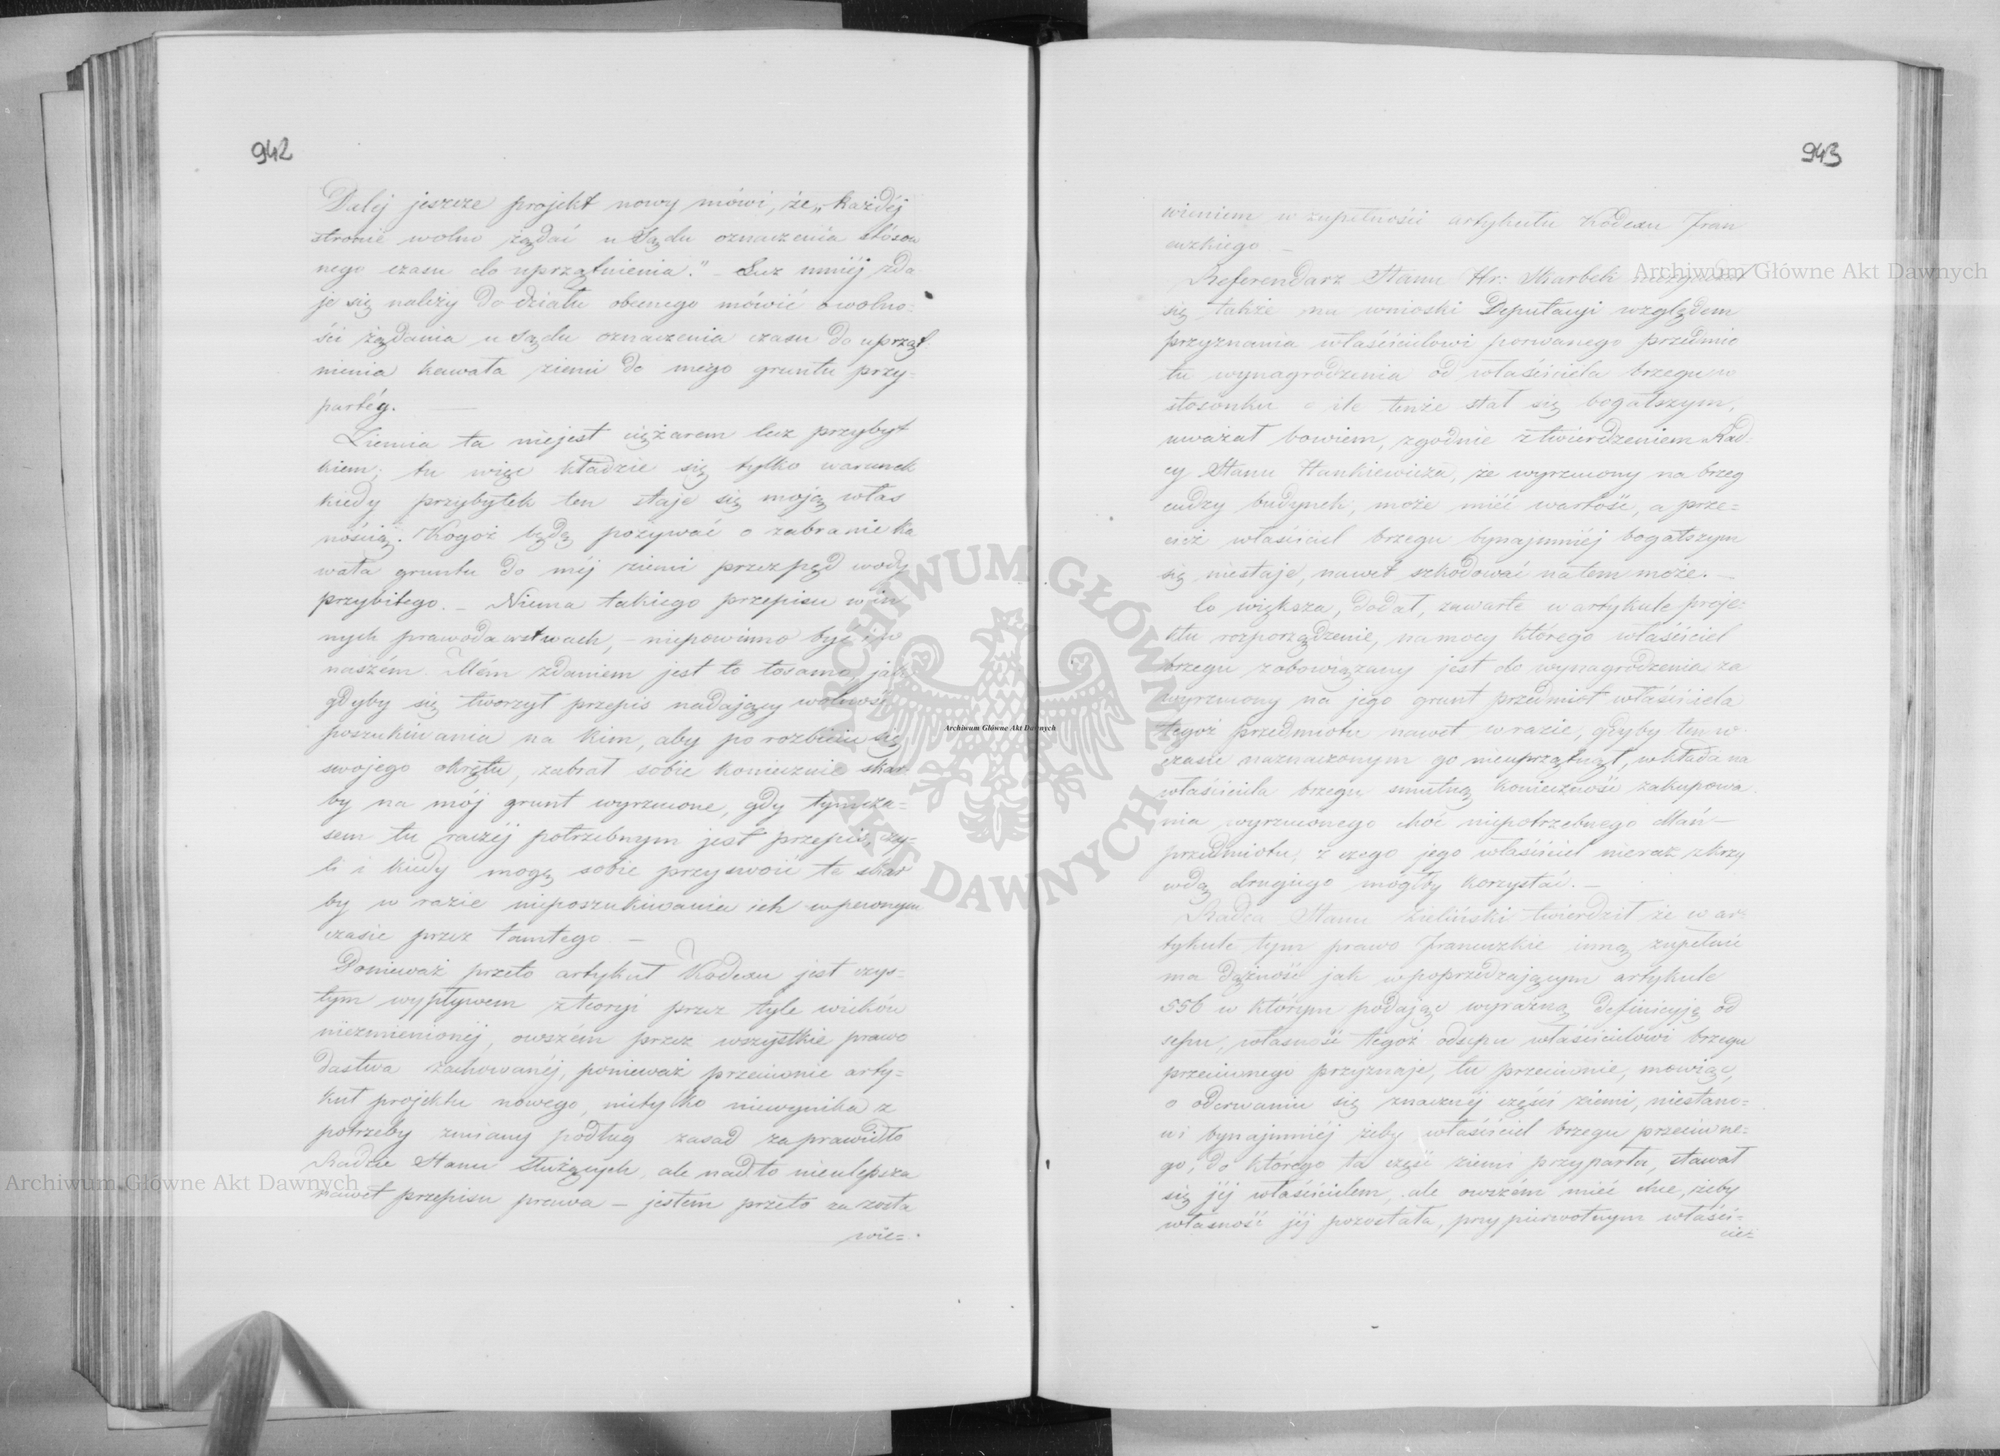 942
Dalej jeszcze projekt nowy mówi, że „każdéj
stronie wolno żądać u Sądu oznaczenia stósow
nego czasu do uprzątnienia." – Lecz mniéj zda
je się należy do działu obecnego mówić o wolno-
ści żądania u Sądu oznaczenia czasu do uprząt-
nienia kawała ziemi do mego gruntu przy-
partég. —
Ziemia ta niejest ciężarem lecz przybyt
kiem; tu więc kładzie się tylko warunek
kiedy przybytek ten staje się moją włas
nością. Kogoż będę pozywać o zabranie ka
wała gruntu do méj ziemi przez pęd wody
przybitego. – Niema takiego przepisu w in
nych prawodawstwach, – niepowinno być i w
naszém. Mém zdaniem jest to tosamo, jak
gdyby się tworzył przepis nadający wolność
poszukiwania na kim, aby po rozbiciu się
swojego okrętu, zabrał sobie koniecznie skar
by na mój grunt wyrzucone, gdy tymcza=
sem tu raczéj potrzebnym jest przepis, czy-
li i kiedy mogę sobie przyswoić te skar
by w razie nieposzukiwania ich w pewnym
czasie przez tamtego —
Ponieważ przeto artykuł Kodexu jest czys=
tym wypływem z teoryi przez tyle wieków
niezmienionéj, owszém przez wszystkie prawo
dastwa zachowanéj, ponieważ przeciwnie arty=
kuł projektu nowego, nietylko niewynika z
potrzeby zmiany podług zasad za prawidło
Radzie Stanu służących, ale nadto nieulepsza
nawet przepisu prawa – jestem przeto za zosta
wie=
943
wieniem w zupełności artykułu Kodexu Fran
cuzkiego —
Referendarz Stanu Hr: Skarbek niezgadzał
się także na wnioski Deputacyi względem
przyznania właścicielowi porwanego przedmio
tu wynagrodzenia od właściciela brzegu w
stosunku o ile tenże stał się bogatszym,
uważał bowiem, zgodnie z twierdzeniem Rad-
cy Stanu Hankiewicza, że wyrzucony na brzeg
cudzy budynek, może mieć wartość, a prze=
cież właściciel brzegu bynajmniéj bogatszym
się niestaje, nawet szkodować na tem może. –
Co większa, dodał, zawarte w artykule proje-
ktu rozporządzenie, na mocy którego właściciel
brzegu zobowiązany jest do wynagrodzenia za
wyrzucony na jego grunt przedmiot właściciela
tegoż przedmiotu nawet w razie, gdyby ten w
czasie naznaczonym go nieuprzątnął, wkłada na
właściciela brzegu smutną konieczność zakupowa
nia wyrzuconego choć niepotrzebnego Mu –
przedmiotu, z czego jego właściciel nieraz z krzy
wdą drugiego mógłby korzystać. –
Radca Stanu Zieliński twierdził że w ar-
tykule tym prawo francuzkie inną zupełnie
ma dążność jak w poprzedzającym artykule
556 w którym podając wyraźną definicyję od
sepu, własność tegoż odsepu właścicielowi brzegu
przeciwnego przyznaje, tu przeciwnie, mówiąc,
o oderwaniu się znacznéj części ziemi, niestano=
wi bynajmniéj żeby właściciel brzegu przeciwne=
go, do którego ta część ziemi przyparta, stawał
się jéj właścicielem, ale owszém mieć chce, żeby
własność jéj pozostała, przy pierwotnym właści=
cie=